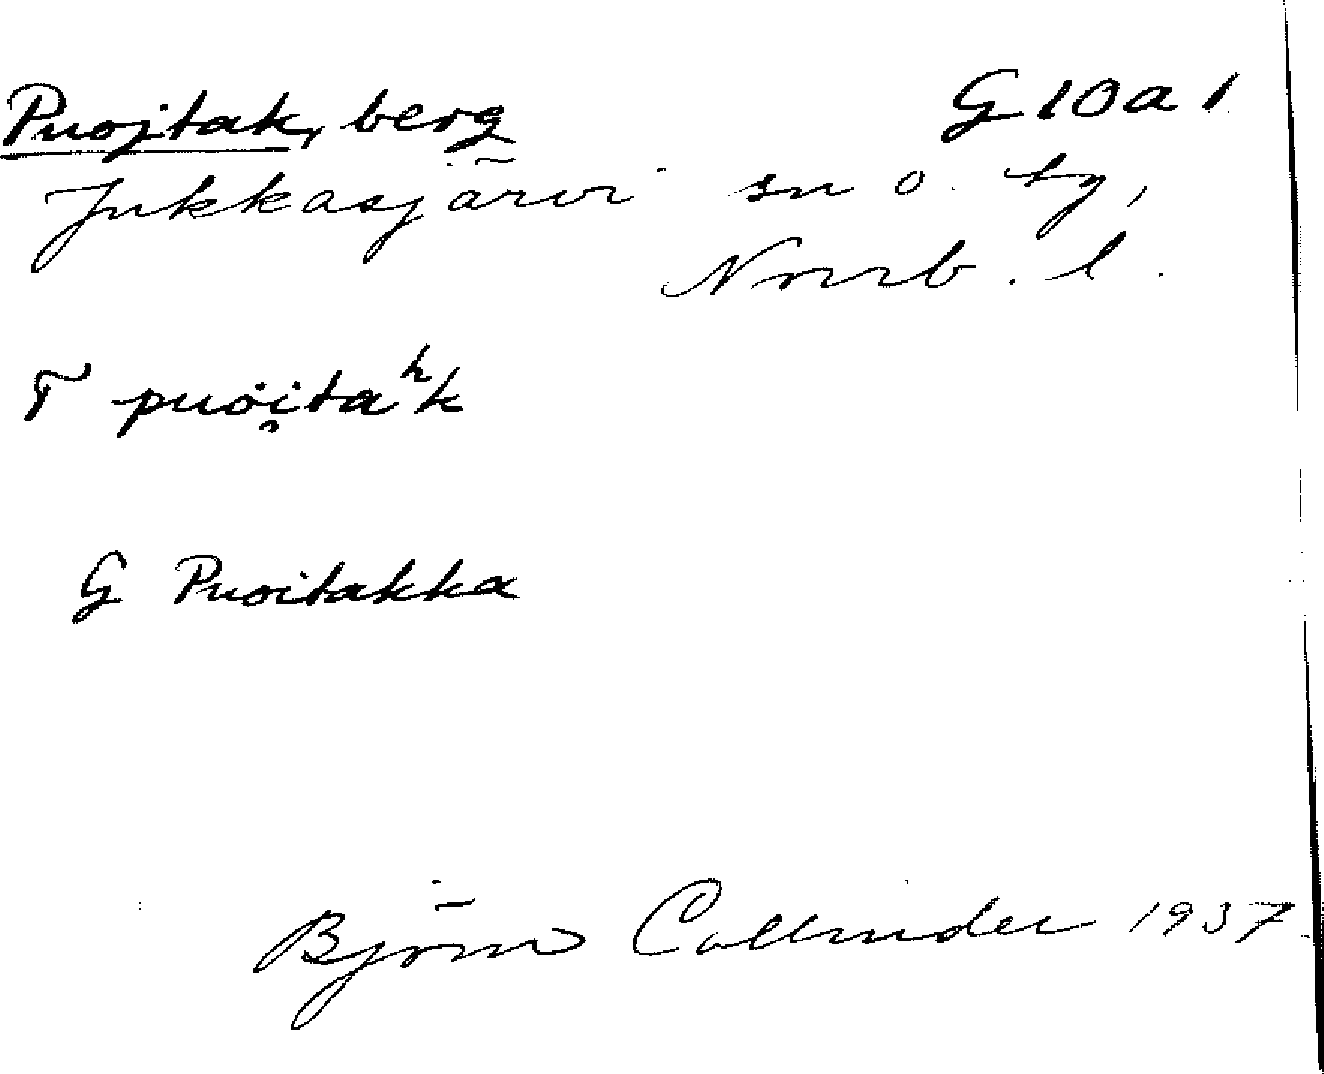 Puojtak, berg G 10 a 1
Jukkasjärvi sn o. tg,
Norrb. l.
T puȯi̯taʰk
G Puoitakka
Björn Collinder 1937